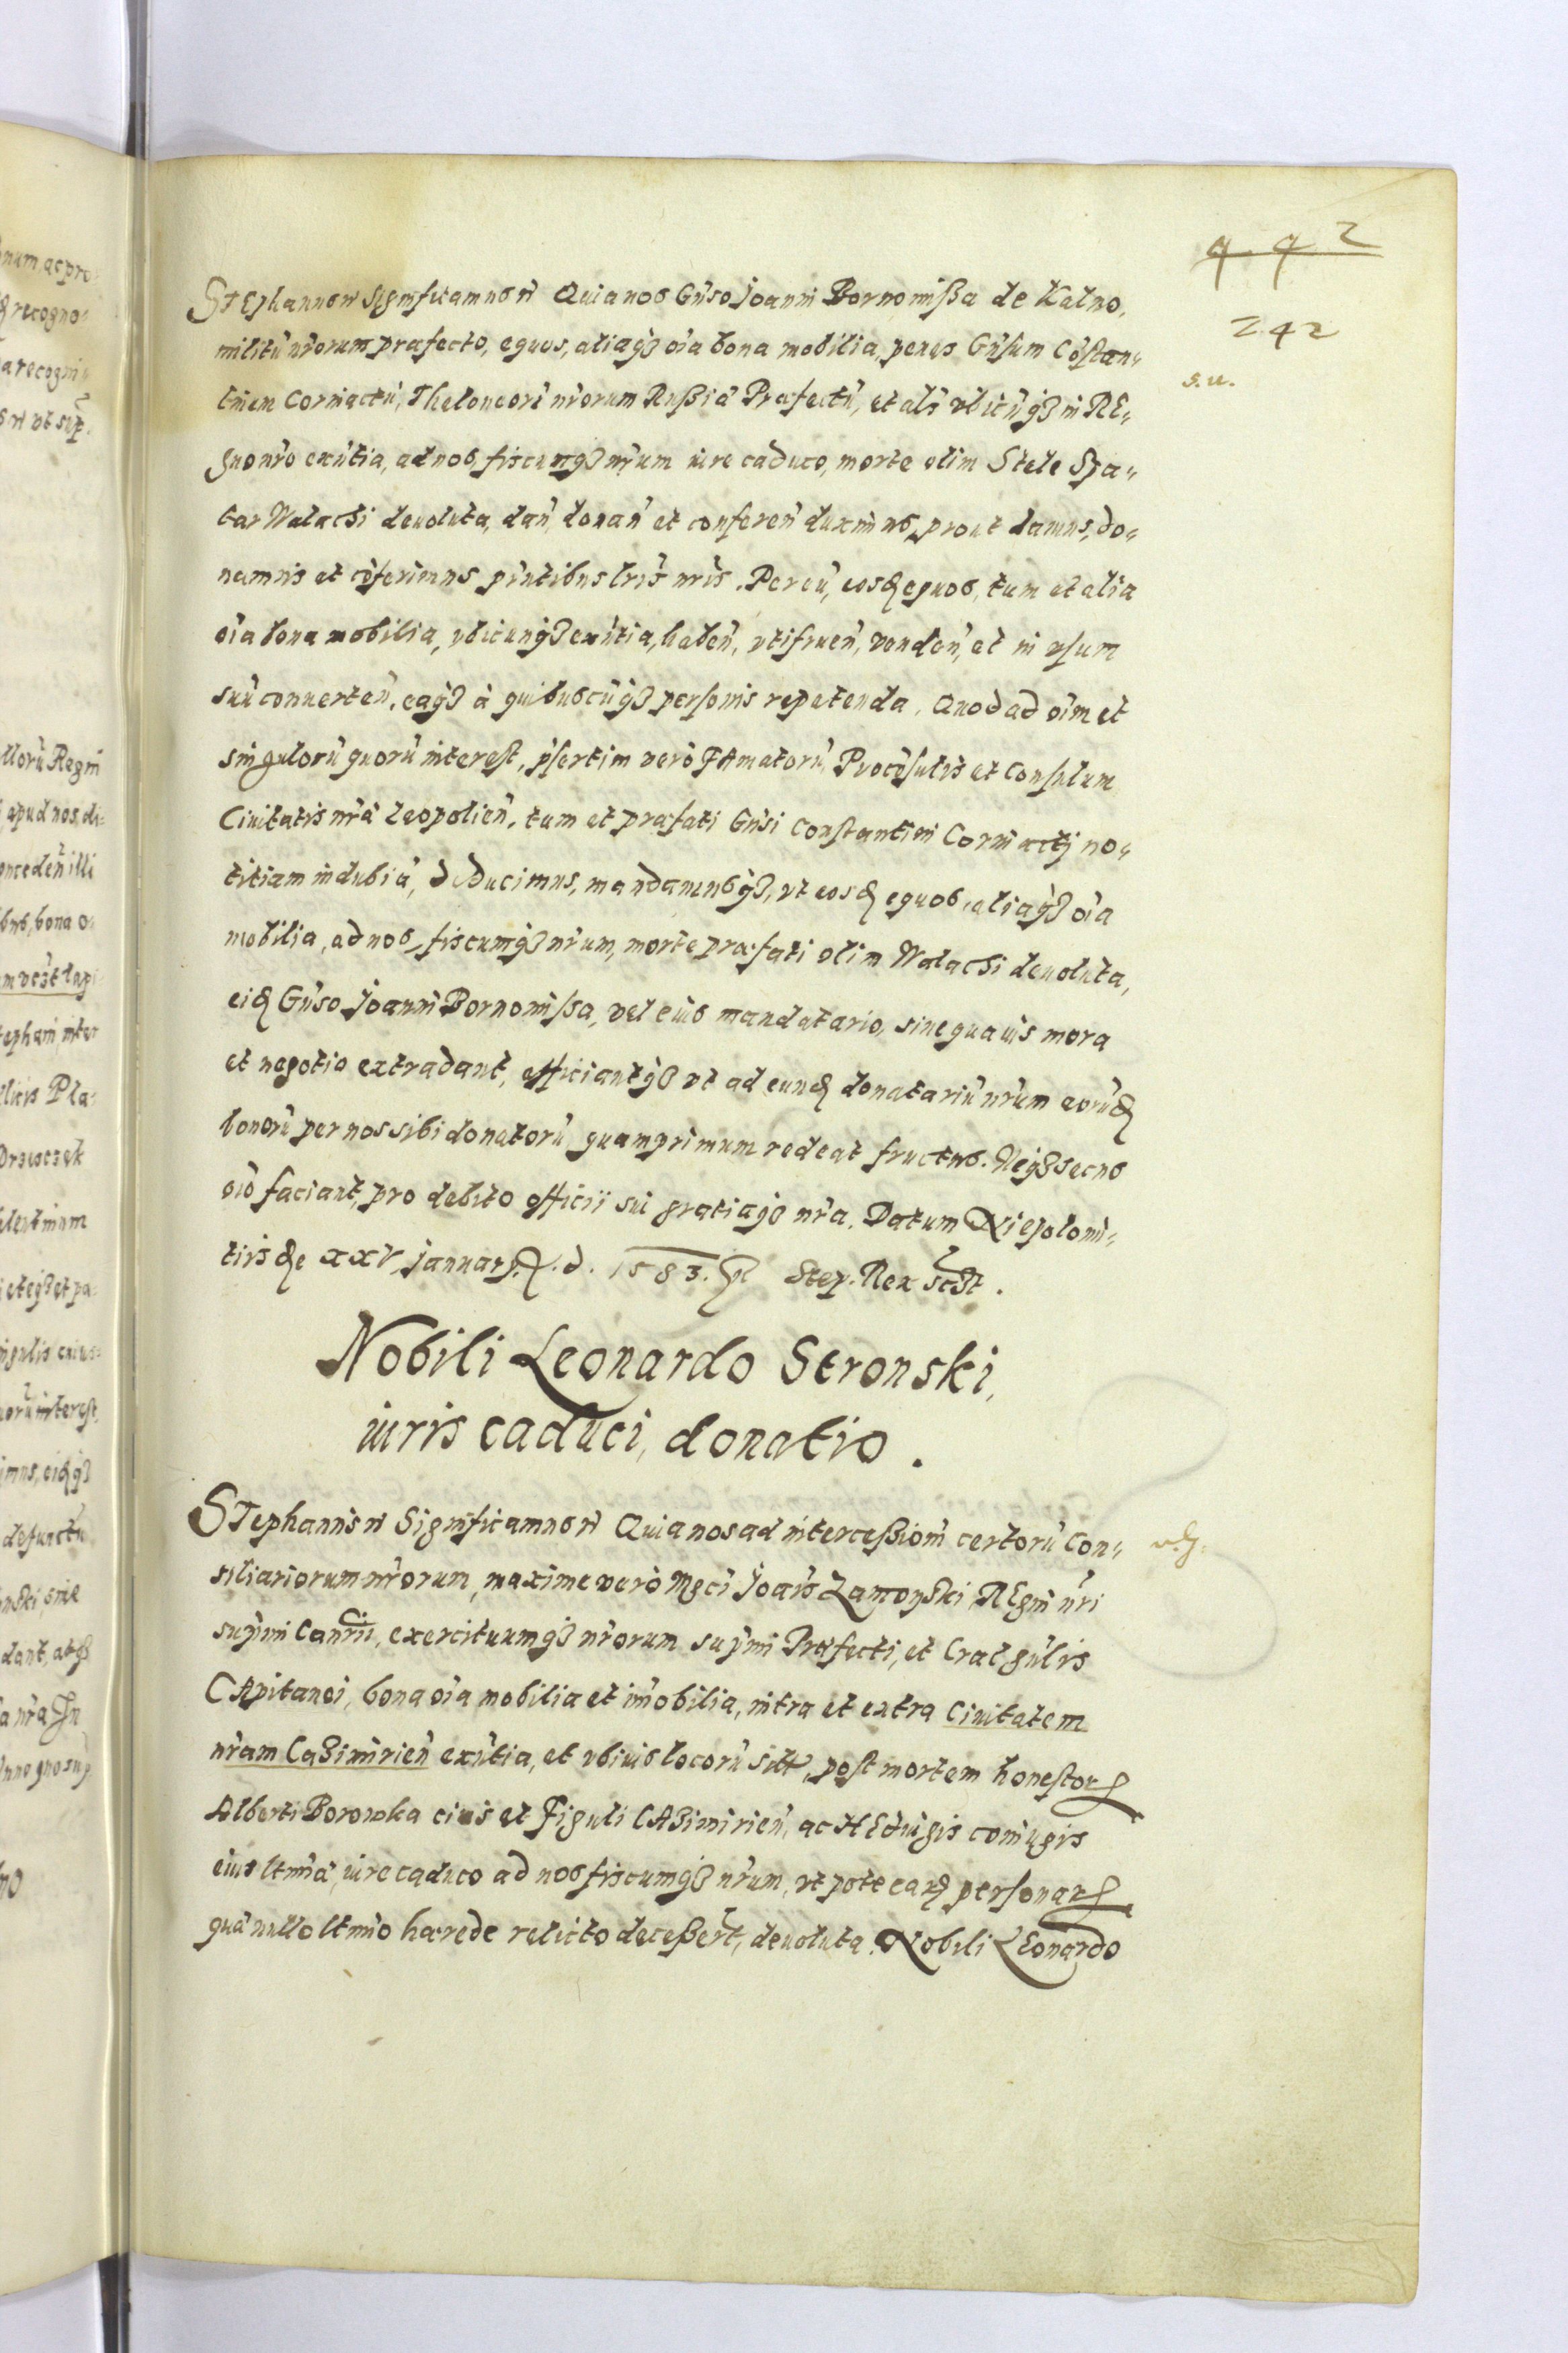 442
242
s. u.
Stephanus etc. Significamus etc. Quia nos Gnso Joanni Bornomißa de Kalno,
militũ nrorum præfecto, equos, aliaq3 oĩa bona mobilia, penes Gnsum Cõstan„
tinum Corniactũ, Theloneorũ nrorum Rußiæ Præfectũ, et alĩs vbicũq3 in RE„
gno nro exñtia, ad nos, fiscumq3 nrum iure caduco, morte olim Stele Spa„
tar Walachi deuoluta, dañ, donañ et confereñ duximus, prout damus, do„
namus et cõferimus pñtibus lris nris. Per eũ, eosd equos, tum et alia
oĩa bona mobilia, vbicunq3 exñtia, habeñ, vtifrueñ, vendeñ, et in vsum
suũ conuerteñ, eaq3 à quibuscũq3 personis repetenda. Quod ad oĩm et
singulorũ quorũ interest, pſertim verò FAmatorũ Procõsulis et Consulum
Ciuitatis nræ Leopolieñ, tum et præfati Gnsi Constantini Corniactj no„
titiam indubiã, deducimus, mandamusq3, vt eosd equos, aliaq3 oĩa
mobilia, ad nos, fiscumq3 nrum, morte præfati olim Walachi deuoluta,
eid Gnso Joanni Bornomißa, vel eius mandatario, sine quauis mora
et negotio extradant, efficiantq3 vt ad eund donatariũ nrum eorũd
bonorũ per nos sibi donatorũ quamprimum redeat fructus. Neq3 secus
oĩo faciant, pro debito officii sui gratiaq3 nra. Datum Niepolomi„
tiis die XXV Januarj. A. d. 1583. R Step. Rex sc3t.
Nobili Leonardo Stronski,
iuris caduci, donatio.
STephanus etc. Significamus etc. Quia nos ad interceßioñ certorũ Con„
siliariorum nrorum, maxime verò Mgci Joañis Zamoyski REgni nri
supmi Canrii, exercituumq3 nrorum supmi Præfecti, et Cracgnĩlis
CApitanei, bona oĩa mobilia et im̃obilia, intra et extra Ciuitatem
nram Casimirieñ exñtia, et vbiuis locorũ sita, post mortem honestor
Alberti Borowka ciuis et Figuli CAsimirieñ, ac HEduigis coniugis
eius ltmæ, iure caduco ad nos fiscumq3 nrum, vt pote eard personar
quæ nullo ltmo hærede relicto deceßert, deuoluta. Nobili LEonardo